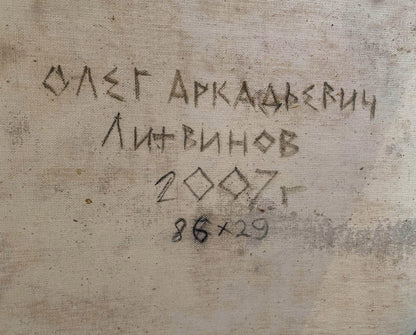 ОЛЕГ АРКАДЬЕВИЧ
ЛИТВИНОВ
2007г
86×29